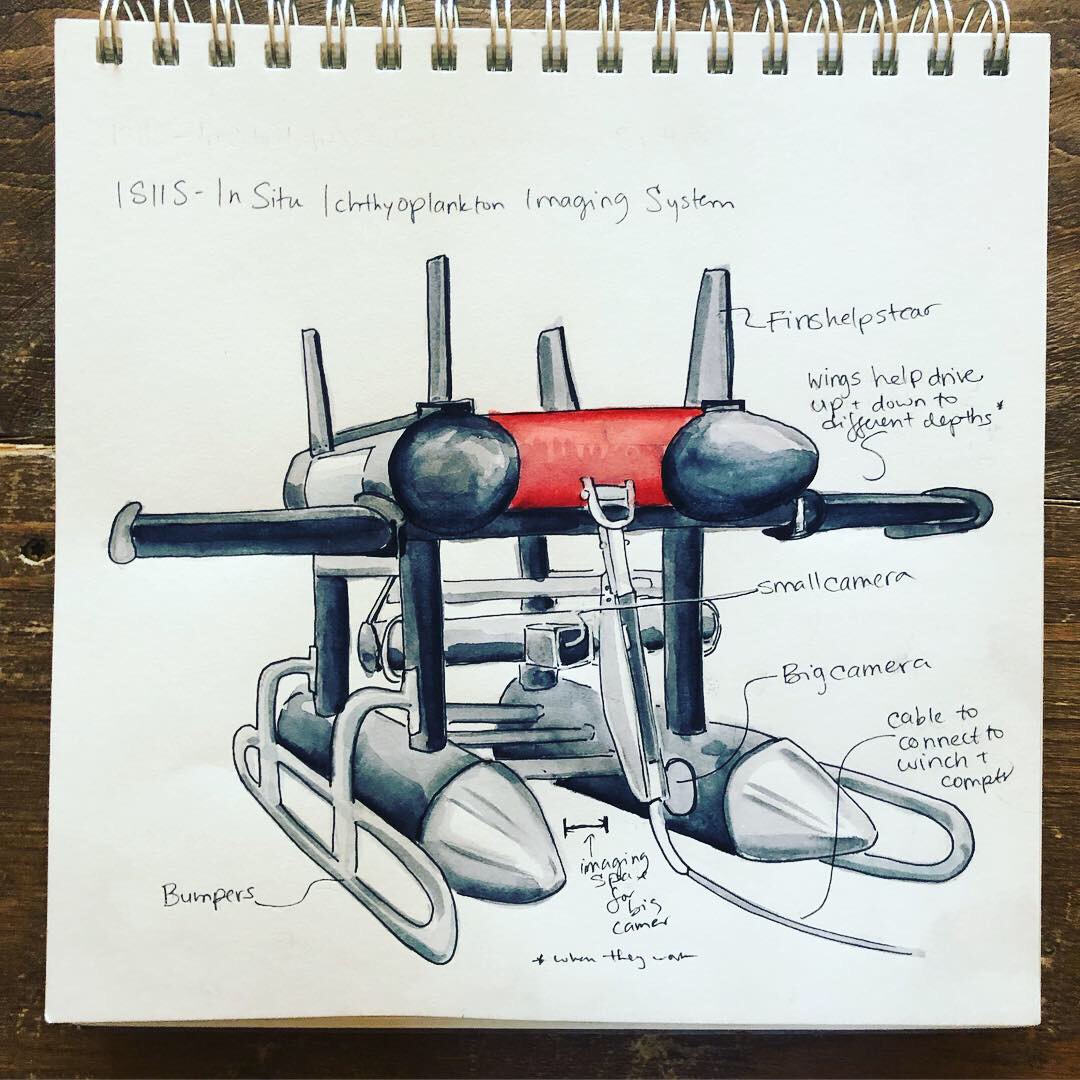 ISIIS - In Situ Ichthyoplankton Imaging System
Fins help stear
wings help drive
up + down to
different depths*
small camera
Big camera
cable to
connect to
winch +
comptr
imaging
space
for
big
camer
Bumpers
* when they work